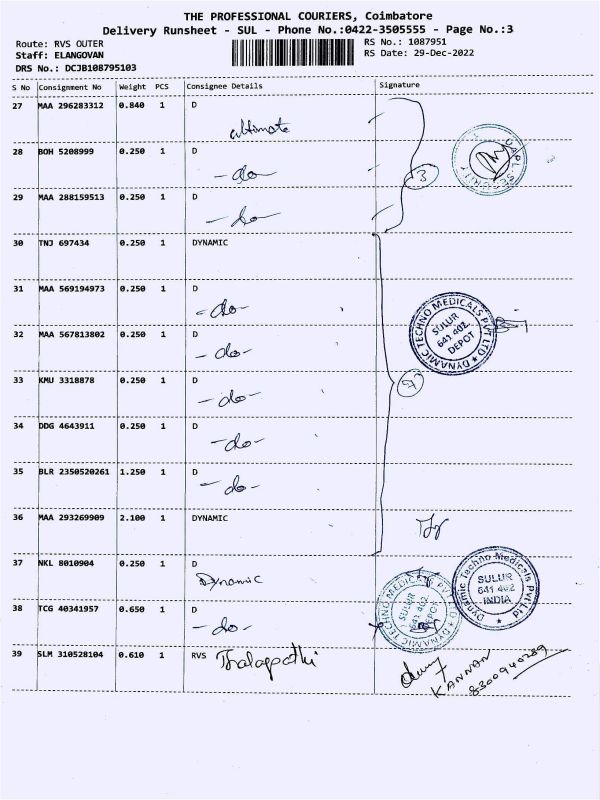 THE PROFESSIONAL COURIERS, Coimbatore
Delivery Runsheet - SUL - Phone No.:0422-3505555 - Page No.:3
Route: RVS OUTER
Staff: ELANGOVAN
DRS No.: DCJB108795103
RS No.: 1087951
RS Date: 29-Dec-2022
S No Consignment No Weight PCS Consignee Details Signature
27 MAA 296283312 0.840 1 D
ultimate
28 BOH 5208999 0.250 1 D
- do -
3
CAPL SECURITY
29 MAA 288159513 0.250 1 D
- do -
30 TNJ 697434 0.250 1 DYNAMIC
31 MAA 569194973 0.250 1 D
- do -
DYNAMIC TECHNO MEDICALS PVT LTD
SULUR
641 402.
DEPOT
32 MAA 567813802 0.250 1 D
- do -
33 KMU 3318878 0.250 1 D
- do -
34 DDG 4643911 0.250 1 D
- do -
35 BLR 2350520261 1.250 1 D
- do -
36 MAA 293269909 2.100 1 DYNAMIC
37 NKL 8010904 0.250 1 D
Dynamic
Dynamic Techno Medicals Pvt Ltd
SULUR
641 402
INDIA
38 TCG 40341957 0.650 1 D
- do -
DYNAMIC TECHNO MEDICALS PVT LTD
SULUR
641 402
DEPOT
39 SLM 310528104 0.610 1 RVS Thalapathi
KANNAN
8300940289